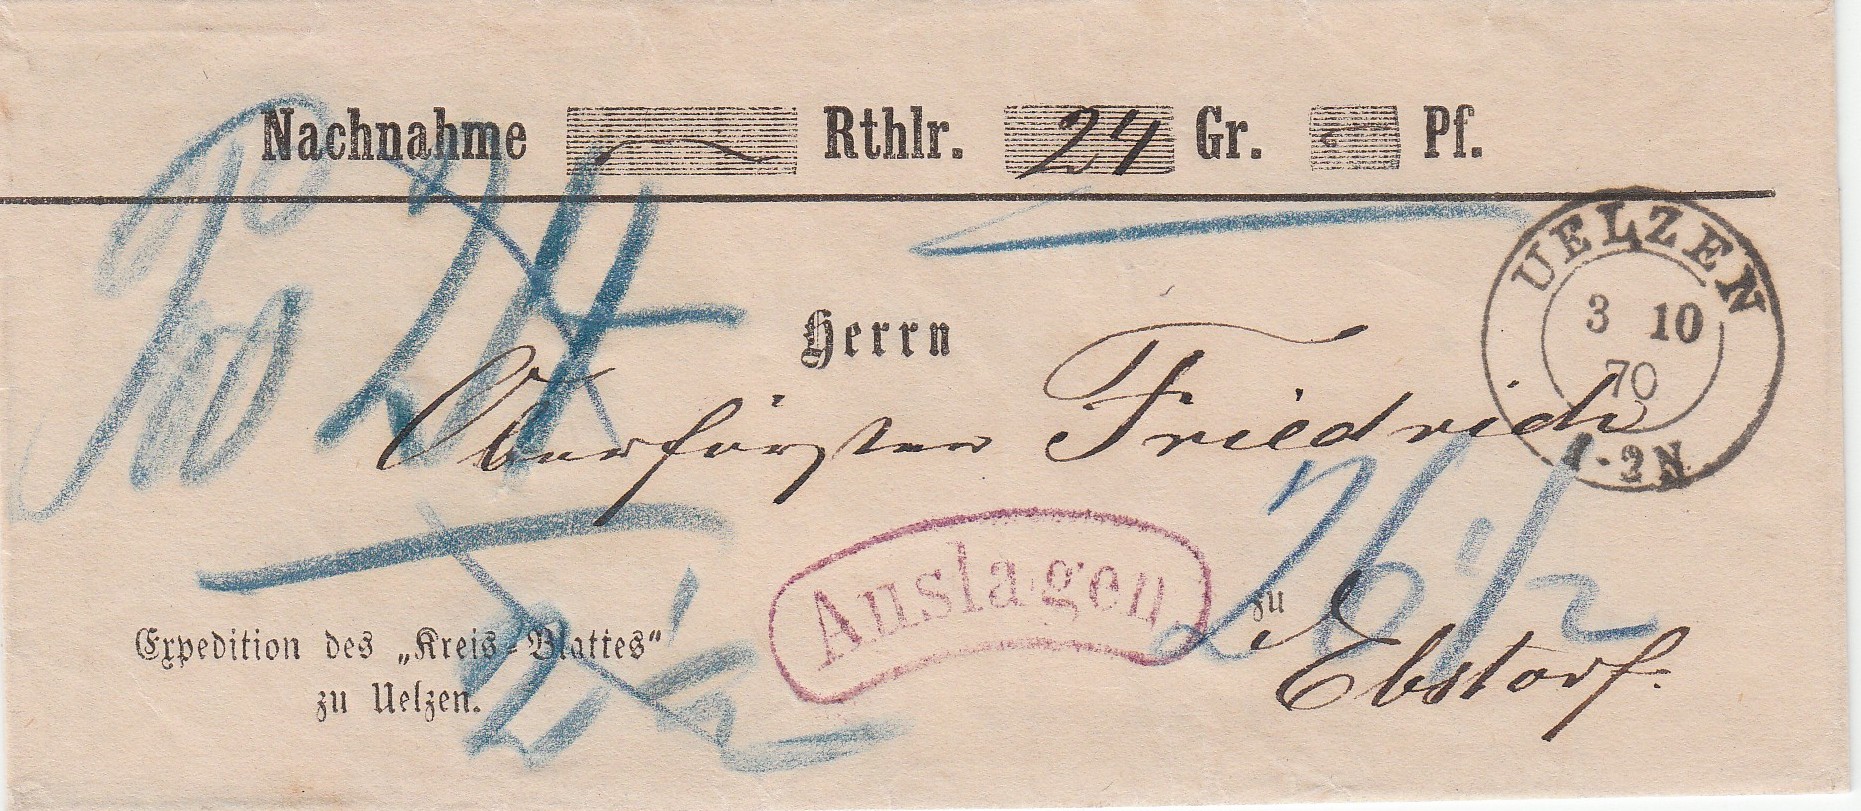 Nachnahme Rthlr. 24 Gr. Pf.
24
UELZEN
3 10
70
1-2N
Herrn
Oberförster Friedrich
Auslagen
26 1/2
zu
Ebstorf.
Expedition des „Kreis-Blattes“
zu Uelzen.
2 1/2